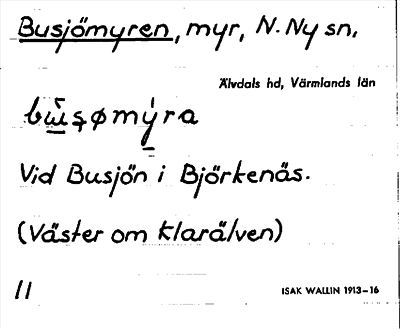 Busjömyren, myr, N. Ny sn.
Älvdals hd, Värmlands län
bu̲̇ʂøm̀y̲ra
Vid Busjön i Björkenäs.
(Väster om Klarälven)
11
ISAK WALLIN 1913-16